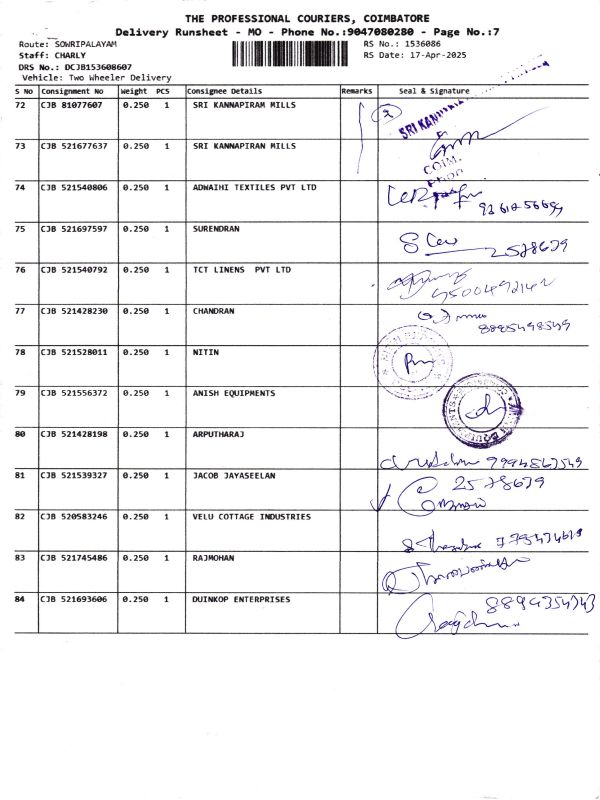 THE PROFESSIONAL COURIERS, COIMBATORE
Delivery Runsheet - MO - Phone No.:9047080280 - Page No.:7
Route: SOWRIPALAYAM RS No.: 1536086
Staff: CHARLY RS Date: 17-Apr-2025
DRS No.: DCJB153608607
Vehicle: Two Wheeler Delivery
S No Consignment No Weight PCS Consignee Details Remarks Seal & Signature
72 CJB 81077607 0.250 1 SRI KANNAPIRAM MILLS 2
73 CJB 521677637 0.250 1 SRI KANNAPIRAN MILLS
COIM.
74 CJB 521540806 0.250 1 ADWAIHI TEXTILES PVT LTD
75 CJB 521697597 0.250 1 SURENDRAN 2578679
76 CJB 521540792 0.250 1 TCT LINENS PVT LTD
77 CJB 521428230 0.250 1 CHANDRAN
78 CJB 521528011 0.250 1 NITIN
79 CJB 521556372 0.250 1 ANISH EQUIPMENTS
80 CJB 521428198 0.250 1 ARPUTHARAJ 9994867549
81 CJB 521539327 0.250 1 JACOB JAYASEELAN 2578679
82 CJB 520583246 0.250 1 VELU COTTAGE INDUSTRIES
83 CJB 521745486 0.250 1 RAJMOHAN
84 CJB 521693606 0.250 1 DUINKOP ENTERPRISES